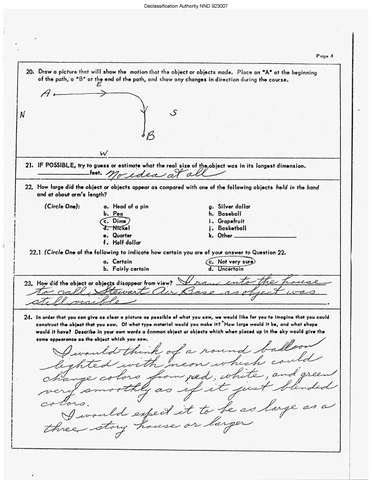 Declassification Authority NND 923007
Page 4
20. Draw a picture that will show the motion that the object or objects made. Place an "A" at the beginning
of the path, a "B" at the end of the path, and show any changes in direction during the course.
E
A
N
S
B
W
21. IF POSSIBLE, try to guess or estimate what the real size of the object was in its longest dimension.
feet. No idea at all
22. How large did the object or objects appear as compared with one of the following objects held in the hand
and at about arm's length?
(Circle One): a. Head of a pin g. Silver dollar
b. Pea h. Baseball
c. Dime i. Grapefruit
d. Nickel j. Basketball
e. Quarter k. Other
f. Half dollar
22.1 (Circle One of the following to indicate how certain you are of your answer to Question 22.
a. Certain c. Not very sure
b. Fairly certain d. Uncertain
23. How did the object or objects disappear from view? I ran into the house
to call Stewart Air Base as object was
still visible
24. In order that you can give as clear a picture as possible of what you saw, we would like for you to imagine that you could
construct the object that you saw. Of what type material would you make it? How large would it be, and what shape
would it have? Describe in your own words a common object or objects which when placed up in the sky would give the
same appearance as the object which you saw.
I would think of a round balloon
lighted with neon which could
change colors from red, white, and green
very smoothly as if it just blended
colors.
I would expect it to be as large as a
three story house or larger